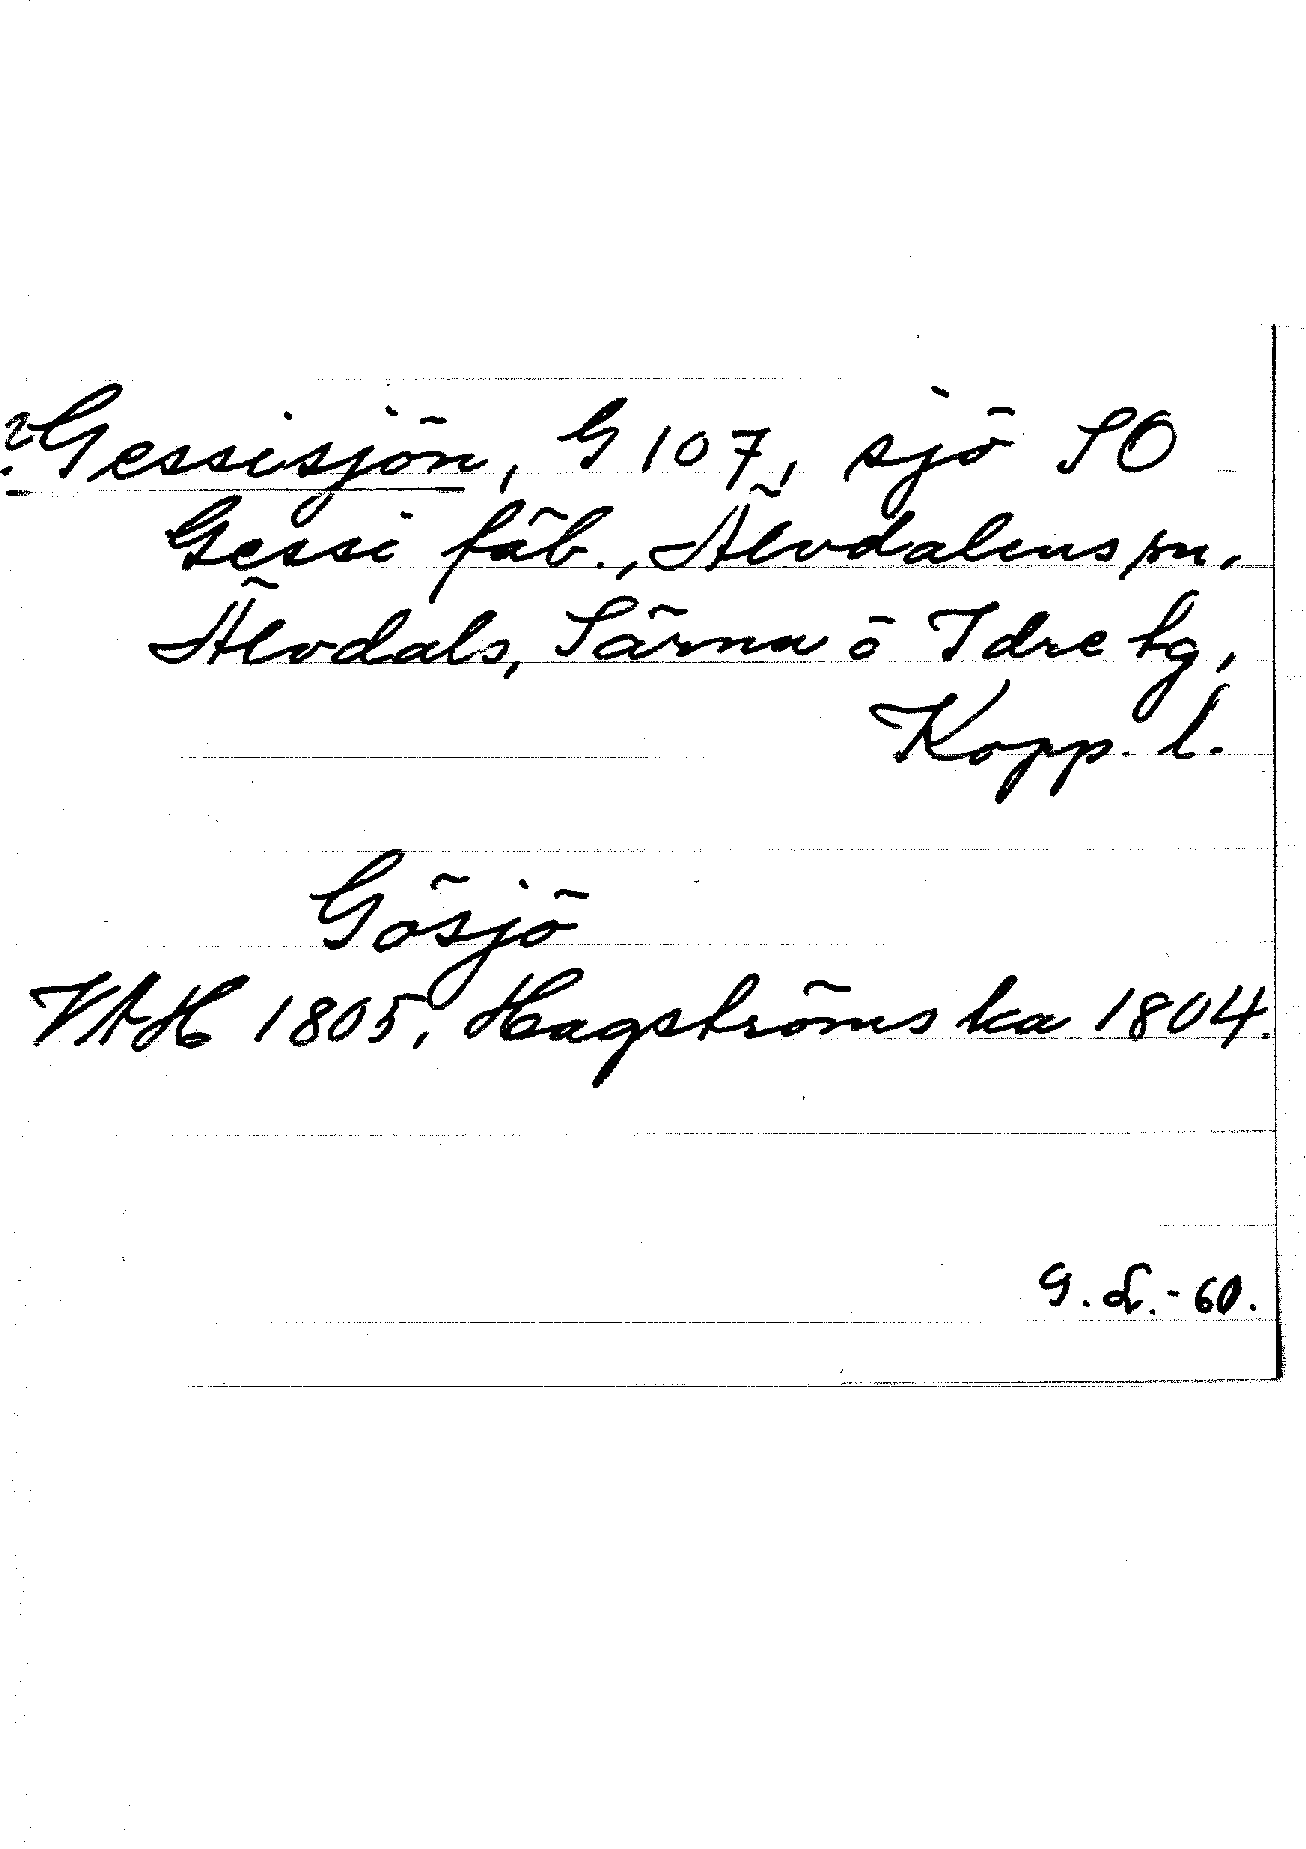 ? Gessisjön, G 107, sjö SO
Gessi fäb., Älvdalens sn,
Älvdals, Särna o Idre tg,
Kopp. l.
Gösjö
VAH 1805, Hagströms ka 1804.
G. L. - 60.